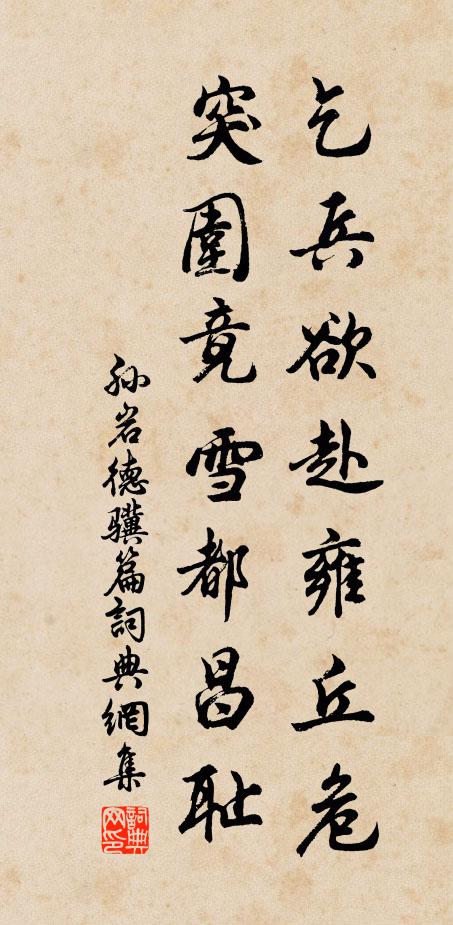 乞兵欲赴雍丘危
突圍竟雪都昌耻
孙岩德骥篇詞典網集
詞典网印